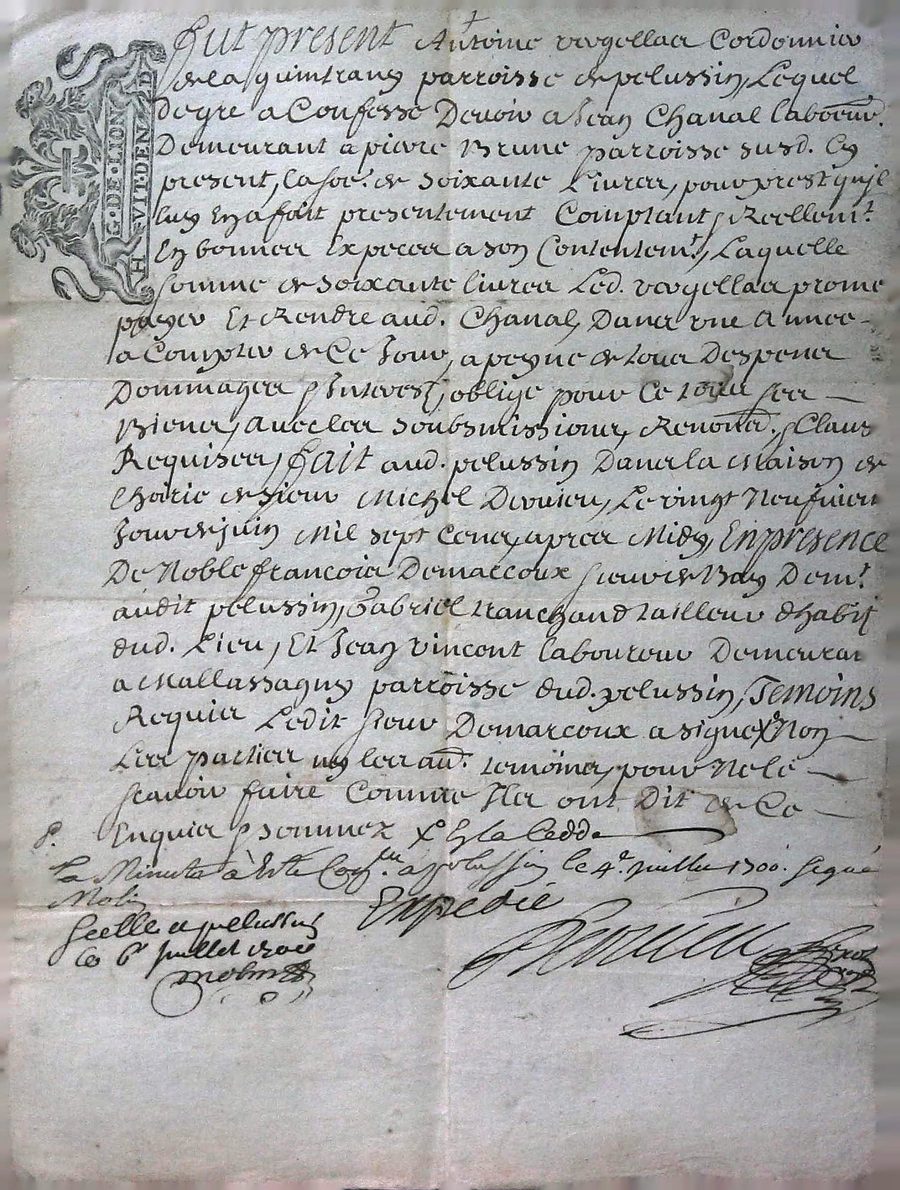 G. DE. LION
HVIT. DEN. D
fut present Antoine vergellas Cordonnier
de la quintrany parroisse de pelussin, Lequel
degre a Confessé Devoir a Jean Chanal laboeur.
Demeurant a pierre Brune parroisse susd. Cy
present, la soe. de soixante Livres, pour prest qu'jl
luy En a fait presentement Comptant, & Reellemt.
En bonnes Expeces a son Contentemt, Laquelle
somme de soixante livres Led. vergellas prome
payer Et Rendre aud. Chanal, Dans une Annee
a Compter de Ce Jour, a peyne de tous Despens
Dommages & Interest, oblige pour Ce tous ses
Biens, avec les soubsmissions, Renond. & Claus
Requises, fait aud. pelussin Dans la Maison de
hoirie de sieur Michel Devrieu, Le vingt Neufvien
Jour de juin Mil sept Cens, apres Midy, En presence
De Noble francois Demarcoux sieur de Bay Demt.
audit pelussin, Gabriel tranchand tailleur d'habit
dud. Lieu, Et Jean vincent laboureur Demeuran
a Mallassagny parroisse dud. pelussin, Temoins
Requis Ledit sieur Demarcoux a signé Non
Les parties ny les aud. temoins, pour Ne le
scavoir faire Comme Ils ont Dit de Ce
Enquis & sommez x Es la Cedde
La Minute à esté a pelussin le 4e. juillet 1700. signé
Molin
Expedié
scelle a pelussin
le 6e juillet
molin